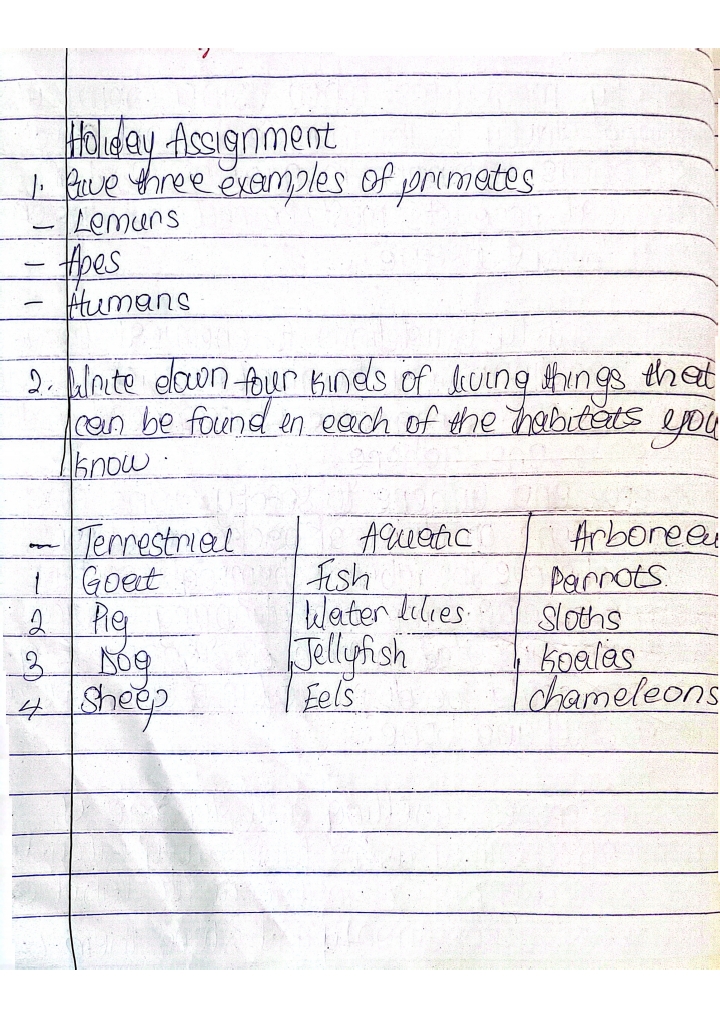 Holiday Assignment
1. Give three examples of primates
- Lemurs
- Apes
- Humans
2. Write down four kinds of living things that
can be found in each of the habitats you
know.
- Terrestrial Aquatic Arboreal
1 Goat Fish Parrots.
2 Pig Water lilies. Sloths
3 Dog Jellyfish Koalas
4 Sheep Eels chameleons